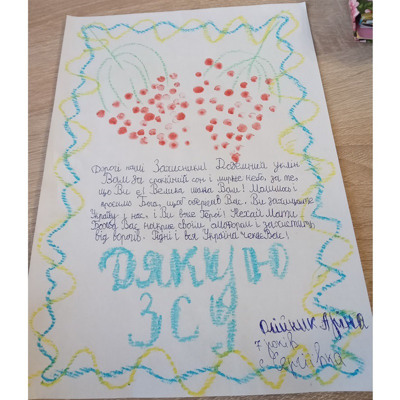 Дорогі наші Захисники! Доземний уклін
Вам за спокійний сон і мирне небо, за те,
що Ви є! Велика шана Вам! Молимось і
просимо Бога, щоб оберігав Вас. Ви захищаєте
Україну і нас, і Ви вже Герої! Нехай Мати
Божа Вас накриє своїм омофором і захистить
від ворогів. Рідні і вся Україна чекає Вас!
ДЯКУЮ
ЗСУ
Олійник Аріна
7 років
с. Сергіївка